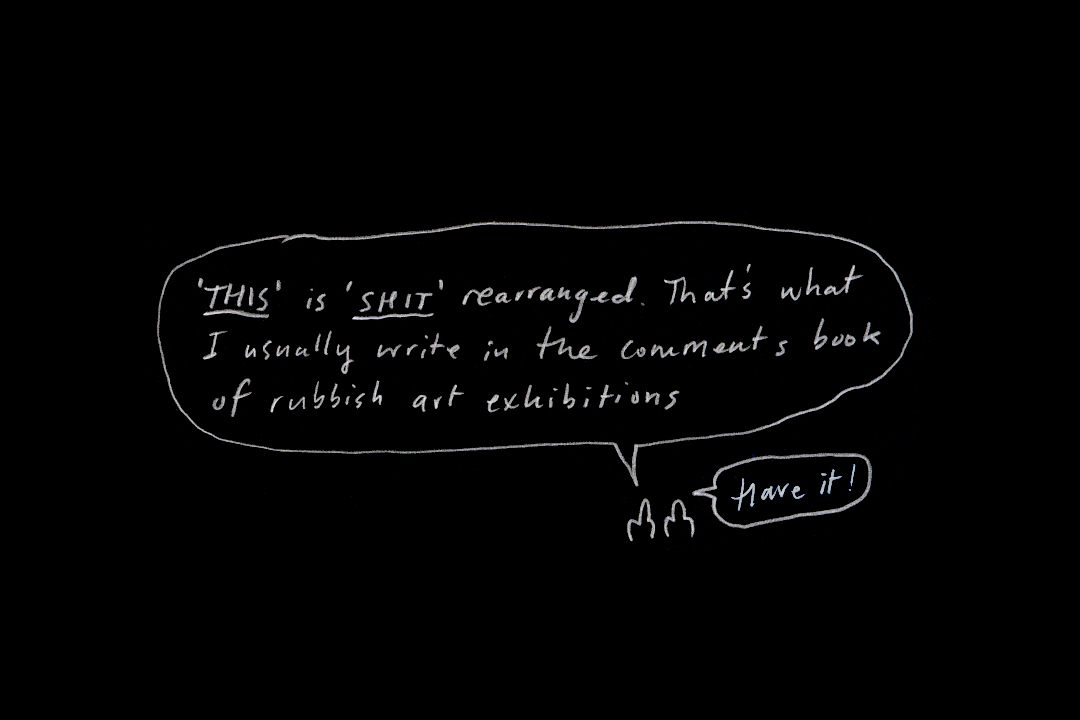 'THIS' is 'SHIT' rearranged. That's what
I usually write in the comments book
of rubbish art exhibitions
Have it!